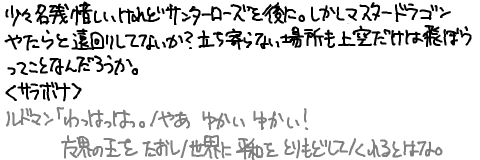 少々名残惜しいけれどサンタローズを後に。しかしマスタードラゴン
やたらと遠回りしてないか？立ち寄らない場所も上空だけは飛ぼう
ってことなんだろうか。
＜サラボナ＞
ルドマン「わっはっはっ。/やあ ゆかい ゆかい！
魔界の王を たおし/世界に 平和を とりもどして/くれるとはな。